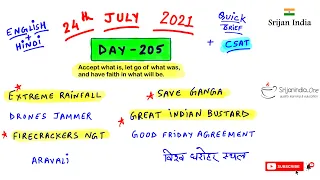 ENGLISH + HINDI
24th JULY 2021
QUICK BRIEF + CSAT
Srijan India
DAY-205
Accept what is, let go of what was, and have faith in what will be.
* EXTREME RAINFALL
* SAVE GANGA
DRONES JAMMER
* GREAT INDIAN BUSTARD
* FIRECRACKERS NGT
GOOD FRIDAY AGREEMENT
ARAVALI
विश्व धरोहर स्थल
SrijanIndia.One
SUBSCRIBE